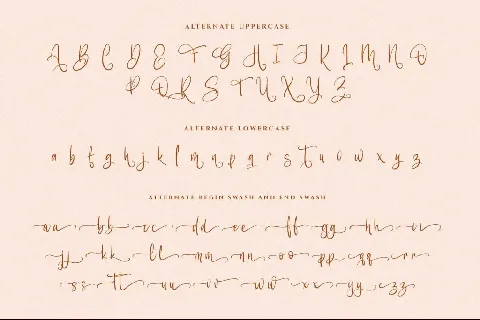 ALTERNATE UPPERCASE
A B C D E F G H I J K L M N O
P Q R S T U X Y Z
ALTERNATE LOWERCASE
a b f g h j k l m n p q r s t u o w x y z
ALTERNATE BEGIN SWASH AND END SWASH
aa bb cc dd ee ff gg hh ii
jj kk ll mm nn oo pp qq rr
ss tt uu vv ww xx yy zz